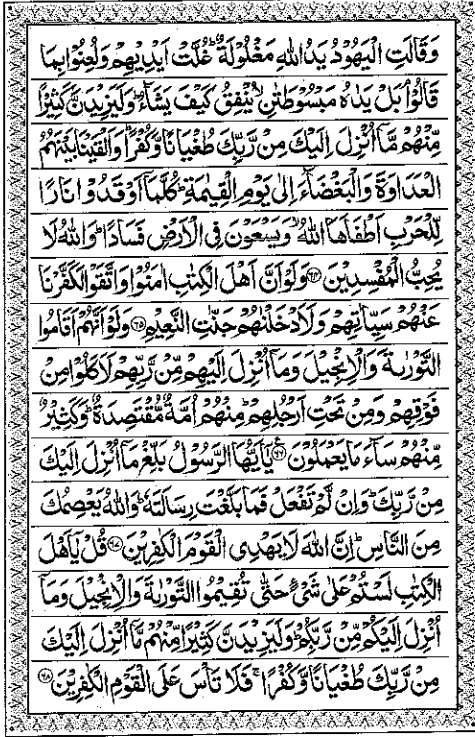 وَقَالَتِ الْيَهُوْدُ يَدُ اللّٰهِ مَغْلُوْلَةٌ ؕ غُلَّتْ اَيْدِيْهِمْ وَلُعِنُوْا بِمَا
قَالُوْا ۘ بَلْ يَدٰهُ مَبْسُوْطَتٰنِ ۙ يُنْفِقُ كَيْفَ يَشَآءُ ؕ وَلَيَزِيْدَنَّ كَثِيْرًا
مِّنْهُمْ مَّاۤ اُنْزِلَ اِلَيْكَ مِنْ رَّبِّكَ طُغْيَانًا وَّكُفْرًا ؕ وَاَلْقَيْنَا بَيْنَهُمُ
الْعَدَاوَةَ وَالْبَغْضَآءَ اِلٰى يَوْمِ الْقِيٰمَةِ ؕ كُلَّمَاۤ اَوْقَدُوْا نَارًا
لِّلْحَرْبِ اَطْفَاَهَا اللّٰهُ ۙ وَيَسْعَوْنَ فِى الْاَرْضِ فَسَادًا ؕ وَاللّٰهُ لَا
يُحِبُّ الْمُفْسِدِيْنَ ﴿۶۴﴾ وَلَوْ اَنَّ اَهْلَ الْكِتٰبِ اٰمَنُوْا وَاتَّقَوْا لَكَفَّرْنَا
عَنْهُمْ سَيِّاٰتِهِمْ وَلَاَدْخَلْنٰهُمْ جَنّٰتِ النَّعِيْمِ ﴿۶۵﴾ وَلَوْ اَنَّهُمْ اَقَامُوا
التَّوْرٰىةَ وَالْاِنْجِيْلَ وَمَاۤ اُنْزِلَ اِلَيْهِمْ مِّنْ رَّبِّهِمْ لَاَكَلُوْا مِنْ
فَوْقِهِمْ وَمِنْ تَحْتِ اَرْجُلِهِمْ ؕ مِنْهُمْ اُمَّةٌ مُّقْتَصِدَةٌ ؕ وَكَثِيْرٌ
مِّنْهُمْ سَآءَ مَا يَعْمَلُوْنَ ﴿۶۶﴾ يٰۤاَيُّهَا الرَّسُوْلُ بَلِّغْ مَاۤ اُنْزِلَ اِلَيْكَ
مِنْ رَّبِّكَ ؕ وَاِنْ لَّمْ تَفْعَلْ فَمَا بَلَّغْتَ رِسَالَتَهٗ ؕ وَاللّٰهُ يَعْصِمُكَ
مِنَ النَّاسِ ؕ اِنَّ اللّٰهَ لَا يَهْدِى الْقَوْمَ الْكٰفِرِيْنَ ﴿۶۷﴾ قُلْ يٰۤاَهْلَ
الْكِتٰبِ لَسْتُمْ عَلٰى شَىْءٍ حَتّٰى تُقِيْمُوا التَّوْرٰىةَ وَالْاِنْجِيْلَ وَمَاۤ
اُنْزِلَ اِلَيْكُمْ مِّنْ رَّبِّكُمْ ؕ وَلَيَزِيْدَنَّ كَثِيْرًا مِّنْهُمْ مَّاۤ اُنْزِلَ اِلَيْكَ
مِنْ رَّبِّكَ طُغْيَانًا وَّكُفْرًا ۚ فَلَا تَاْسَ عَلَى الْقَوْمِ الْكٰفِرِيْنَ ﴿۶۸﴾